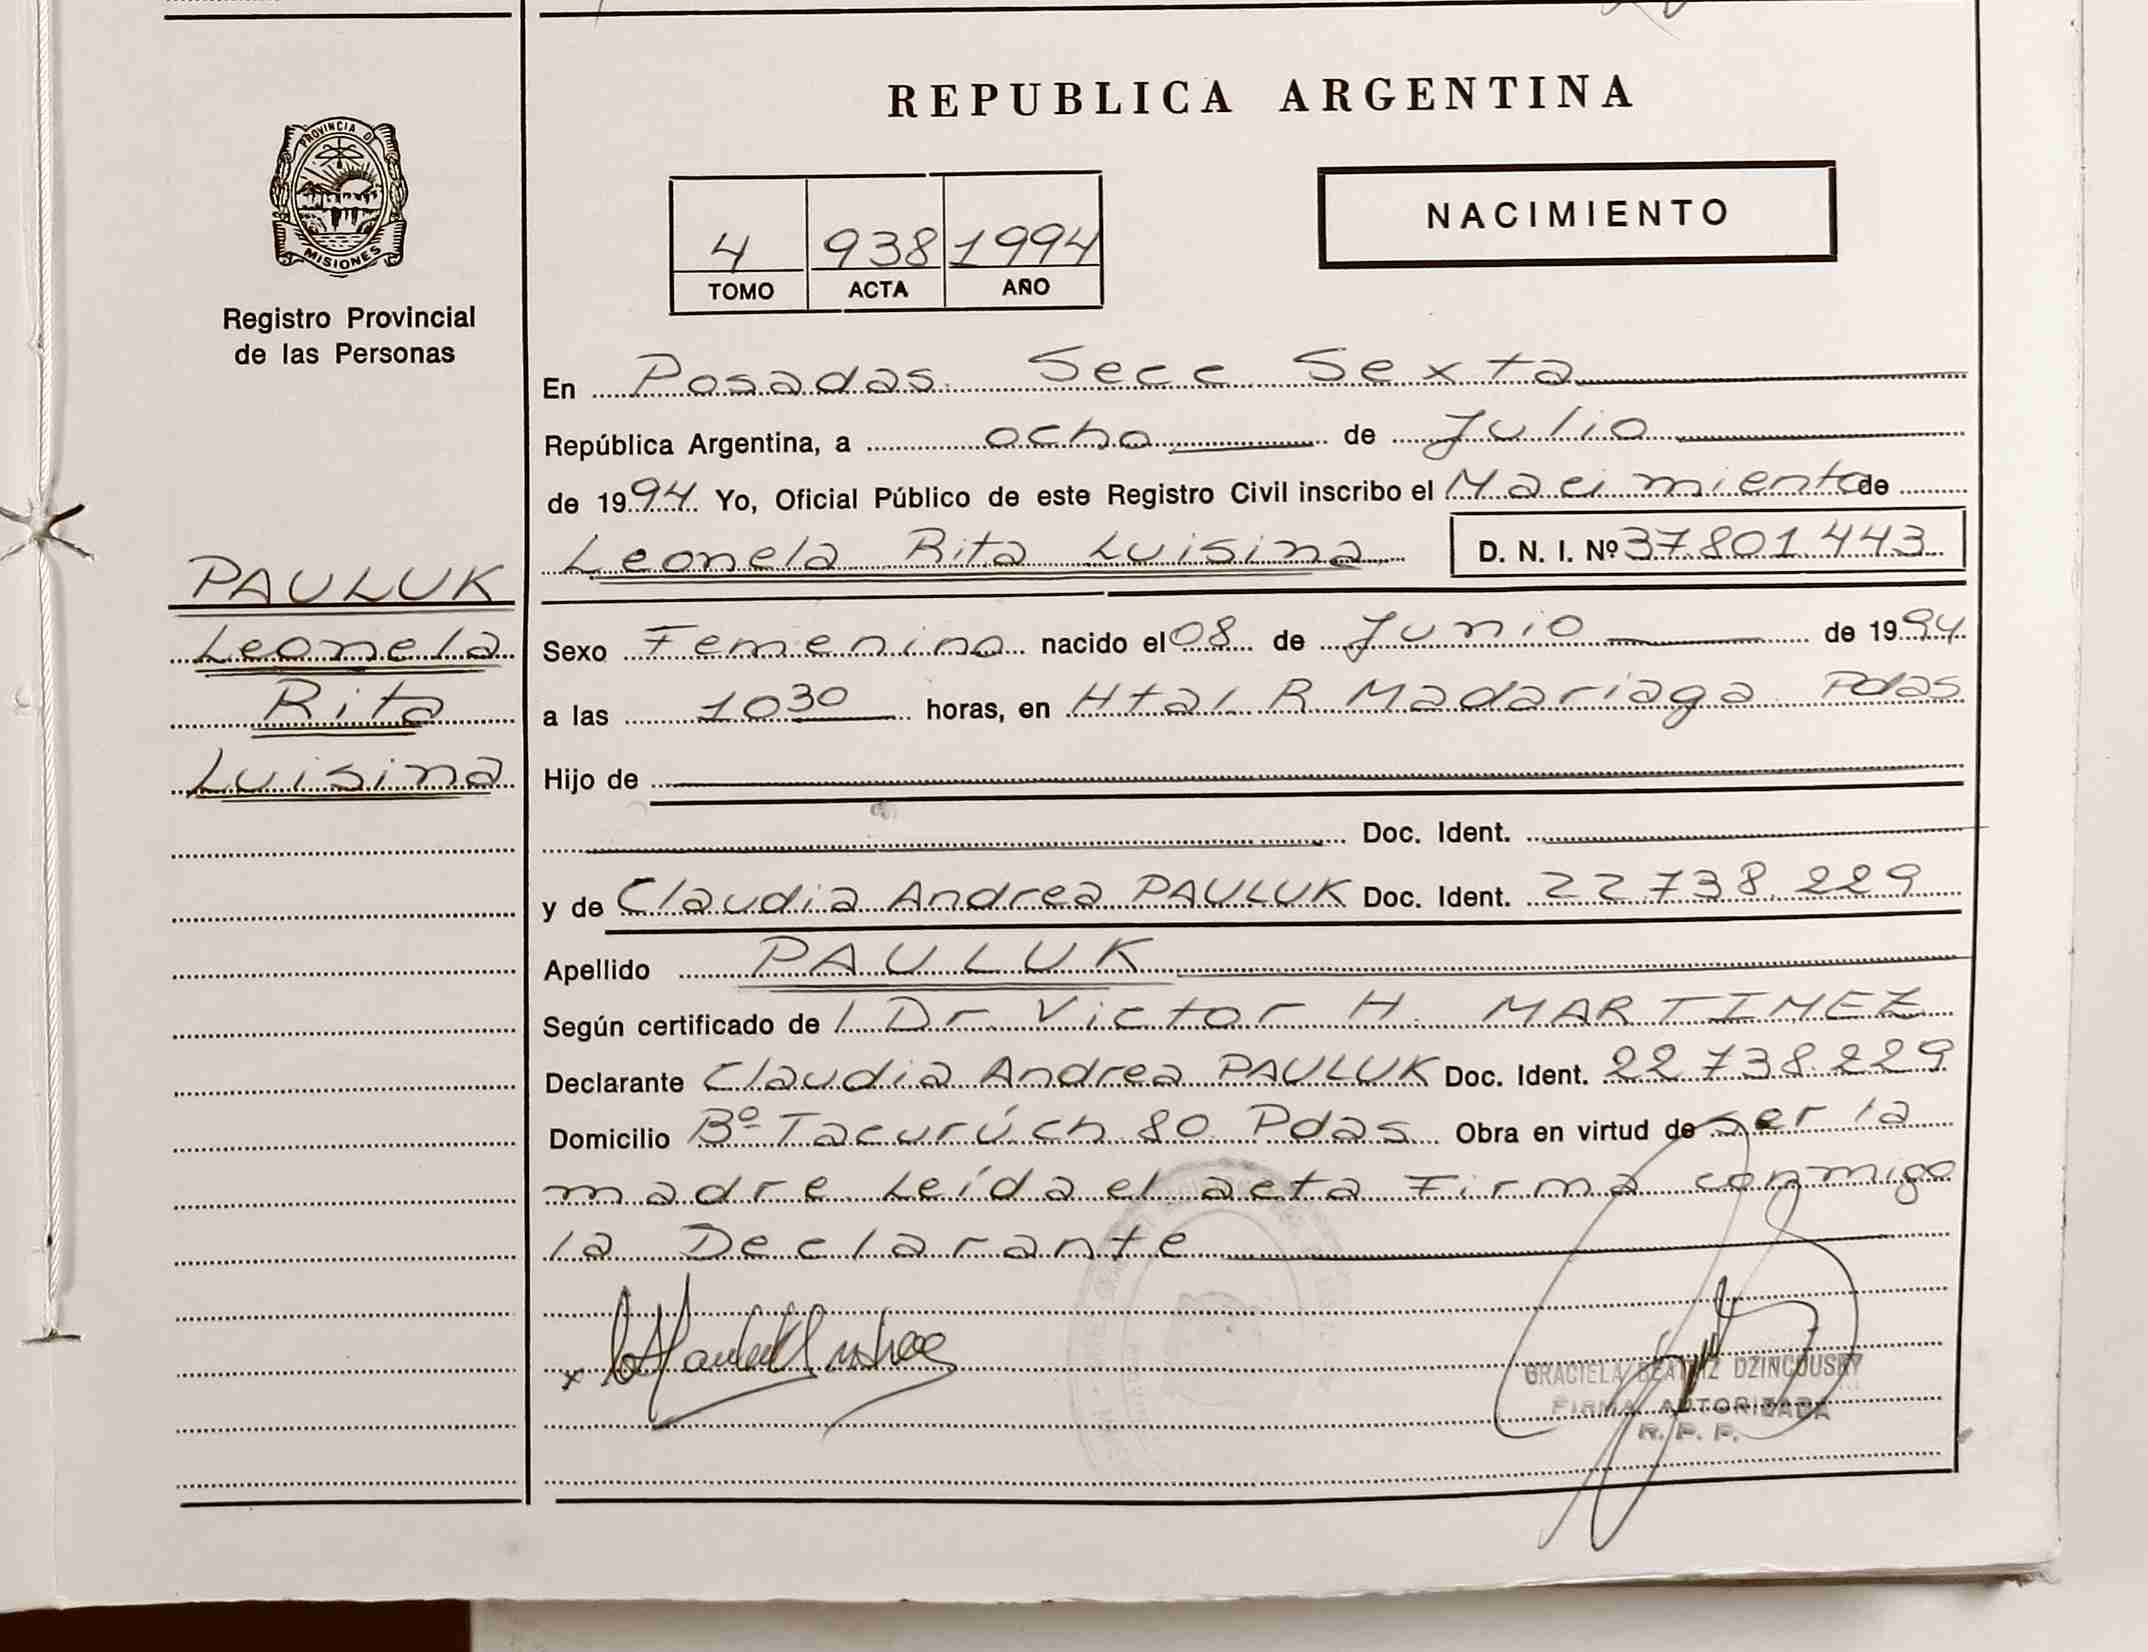 PROVINCIA DE
MISIONES
Registro Provincial
de las Personas
PAULUK
Leonela
Rita
Luisina
REPUBLICA ARGENTINA
4 938 1994
TOMO ACTA AÑO
NACIMIENTO
En Posadas Secc Sexta
República Argentina, a ocho de Julio
de 1994 Yo, Oficial Público de este Registro Civil inscribo el Nacimiento de
Leonela Rita Luisina D. N. I. Nº 37.801.443
Sexo Femenino nacido el 08 de Junio de 1994
a las 10 30 horas, en Htal R Madariaga Pdas
Hijo de
Doc. Ident.
y de Claudia Andrea PAULUK Doc. Ident. 22.738.229
Apellido PAULUK
Según certificado de / Dr Victor H. MARTINEZ
Declarante Claudia Andrea PAULUK Doc. Ident. 22.738.229
Domicilio Bº Tacurú ch 80 Pdas Obra en virtud de ser la
madre Leída el acta Firma conmigo
la Declarante
x
GRACIELA BEATRIZ DZINCOUSKY
FIRMA AUTORIZADA
R. P. P.